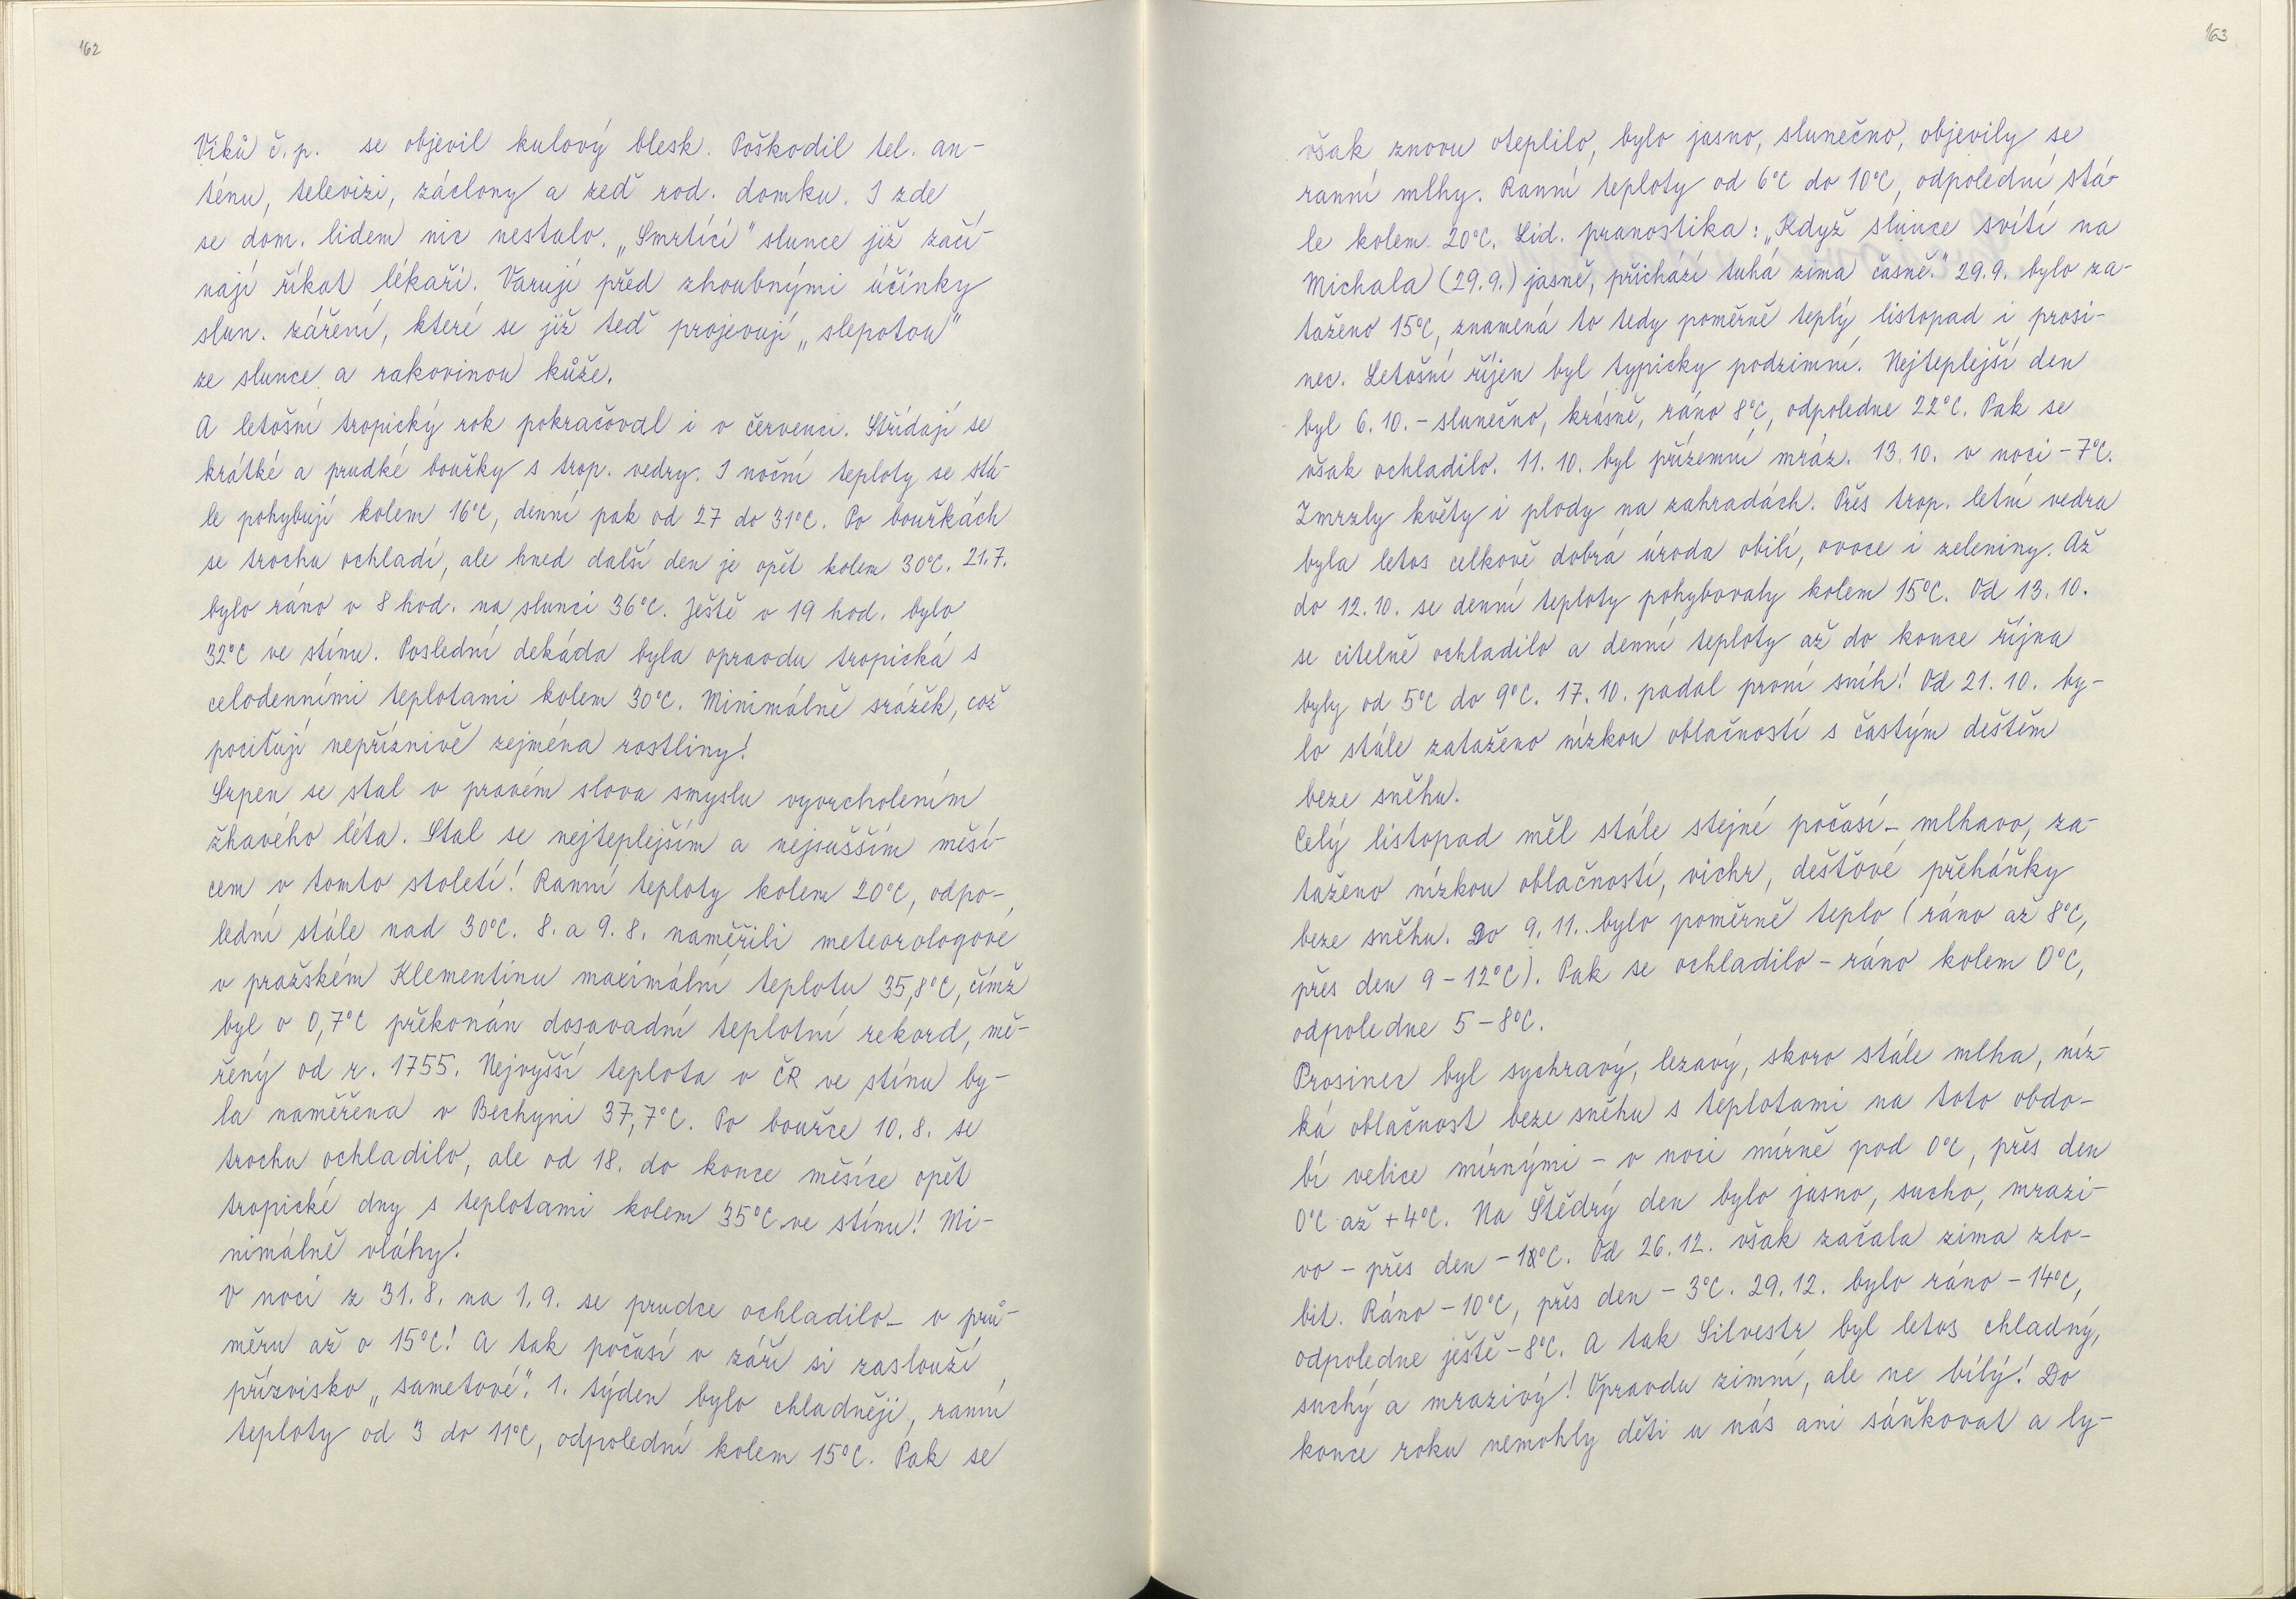 162
Víků č.p. se objevil kulový blesk. Poškodil tel. an-
ténu, televizi, záclony a zeď rod. domku. I zde
se dom. lidem nic nestalo. „Smrtící" slunce již začí-
nají říkat lékaři. Varují před zhoubnými účinky
slun. záření, které se již teď projevují „slepotou"
ze slunce a rakovinou kůže.
A letošní tropický rok pokračoval i v červenci. Střídají se
krátké a prudké bouřky s trop. vedry. I noční teploty se stá-
le pohybují kolem 16°C, denní pak od 27 do 31°C. Po bouřkách
se trochu ochladí, ale hned další den je opět kolem 30°C. 21.7.
bylo ráno v 8 hod. na slunci 36°C. Ještě v 19 hod. bylo
32°C ve stínu. Poslední dekáda byla opravdu tropická s
celodenními teplotami kolem 30°C. Minimálně srážek, což
pociťují nepříznivě zejména rostliny!
Srpen se stal v pravém slova smyslu vyvrcholením
žhavého léta. Stal se nejteplejším a nejsušším měsí-
cem v tomto století! Ranní teploty kolem 20°C, odpo-
lední stále nad 30°C. 8. a 9.8. naměřili meteorologové
v pražském Klementinu maximální teplotu 35,8°C, čímž
byl o 0,7°C překonán dosavadní teplotní rekord, mě-
řený od r. 1755. Nejvyšší teplota v ČR ve stínu by-
la naměřena v Bechyni 37,7°C. Po bouřce 10.8. se
trochu ochladilo, ale od 18. do konce měsíce opět
tropické dny s teplotami kolem 35°C ve stínu! Mi-
nimálně vláhy!
V noci z 31.8. na 1.9. se prudce ochladilo – v prů-
měru až o 15°C! A tak počasí v září si zaslouží
přízvisko „sametové". 1. týden bylo chladněji, ranní
teploty od 3 do 11°C, odpolední kolem 15°C. Pak se
163
však znovu oteplilo, bylo jasno, slunečno, objevily se
ranní mlhy. Ranní teploty od 6°C do 10°C, odpolední stá-
le kolem 20°C. Lid. pranostika: „Když slunce svítí na
Michala (29.9.) jasně, přichází tuhá zima časně." 29.9. bylo za-
taženo 15°C, znamená to tedy poměrně teplý listopad i prosi-
nec. Letošní říjen byl typicky podzimní. Nejteplejší den
byl 6.10. – slunečno, krásně, ráno 8°C, odpoledne 22°C. Pak se
však ochladilo. 11.10. byl přízemní mráz. 13.10. v noci – 7°C.
Zmrzly květy i plody na zahradách. Přes trop. letní vedra
byla letos celkově dobrá úroda obilí, ovoce i zeleniny. Až
do 12.10. se denní teploty pohybovaly kolem 15°C. Od 13.10.
se citelně ochladilo a denní teploty až do konce října
byly od 5°C do 9°C. 17.10. padal první sníh! Od 21.10. by-
lo stále zataženo nízkou oblačností s častým deštěm
beze sněhu.
Celý listopad měl stále stejné počasí – mlhavo, za-
taženo nízkou oblačností, vichr, dešťové přeháňky
beze sněhu. Do 9.11. bylo poměrně teplo (ráno až 8°C,
přes den 9 – 12°C). Pak se ochladilo – ráno kolem 0°C,
odpoledne 5 – 8°C.
Prosinec byl sychravý, lezavý, skoro stále mlha, níz-
ká oblačnost beze sněhu s teplotami na toto obdo-
bí velice mírnými – v noci mírně pod 0°C, přes den
0°C až +4°C. Na Štědrý den bylo jasno, sucho, mrazi-
vo – přes den °C. Od 26.12. však začala zima zlo-
bit. Ráno – 10°C, přes den – 3°C. 29.12. bylo ráno – 14°C,
odpoledne ještě – 8°C. A tak Silvestr byl letos chladný,
suchý a mrazivý! Opravdu zimní, ale ne bílý! Do
konce roku nemohly děti u nás ani sáňkovat a ly-